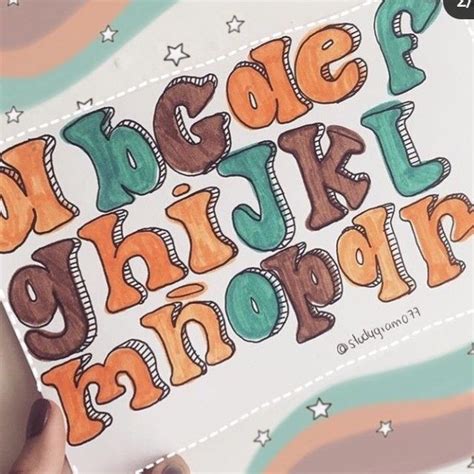 2/
a b C d e f
g h i J K L
m ñ o p q r
@studygram077